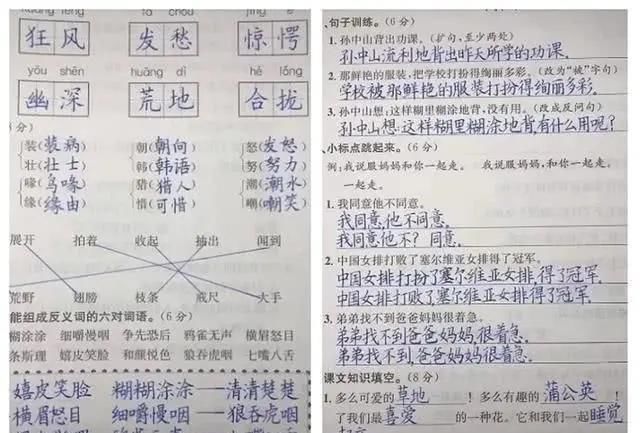 kuáng fēng
fā chóu
jīng è
狂风 发愁 惊愕
yōu shēn
huāng dì
hé lǒng
幽深 荒地 合拢
分)
装(装病) 朝(朝向) 怒(发怒)
壮(壮士) 韩(韩语) 努(努力)
喙(鸟喙) 猎(猎人) 潮(潮水)
缘(缘由) 惜(可惜) 嘲(嘲笑)
展开 拍着 收起 抽出 闻到
荒野 翅膀 枝条 戒尺 大手
能组成反义词的六对词语。(6分)
糊涂涂 细嚼慢咽 争先恐后 鸦雀无声 横眉怒目
条斯理 嬉皮笑脸 和颜悦色 狼吞虎咽 七嘴八舌
嬉皮笑脸 糊糊涂涂——清清楚楚
横眉怒目 细嚼慢咽——狼吞虎咽
、句子训练。(6分)
1.孙中山背出功课。(扩句,至少两处)
孙中山流利地背出昨天所学的功课.
2.那鲜艳的服装,把学校打扮得绚丽多彩。(改为“被”字句)
学校被那鲜艳的服装打扮得绚丽多彩.
3.孙中山想:这样糊里糊涂地背,没有用。(改成反问句)
孙中山想:这样糊里糊涂地背有什么用呢?
小标点跳起来。(6分)
例:我说服妈妈和你一起走。 我说服妈妈,和你一起走。
一起走。
1.我同意他不同意。
我同意,他不同意.
我同意他不?同意.
2.中国女排打败了塞尔维亚女排得了冠军。
中国女排打扮了塞尔维亚女排,得了冠军.
中国女排打败了塞尔维亚女排得了冠军.
3.弟弟找不到爸爸妈妈很着急。
弟弟找不到爸爸妈妈,很着急.
弟弟找不到,爸爸妈妈很着急.
课文知识填空。(8分)
1.多么可爱的草地!多么有趣的蒲公英!
了我们最喜爱的一种花。它和我们一起睡觉